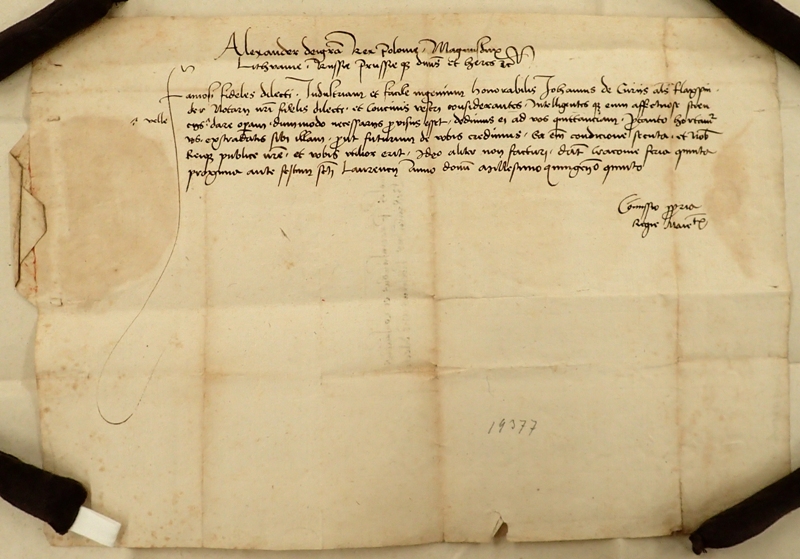 Alexander dei grã Rex Polonie, Magnus dux
Lithwanie, Russie Prussie q3 dñus et heres etc
Famosi fideles dilecti. Industriam et facile ingenium honorabilis Johannis de Curiis als Flaxpin
der Notarii nrĩ fidelis dilecti, et Concivis vestri considerantes, Intelligentes q3 eum
et velle
dare operam, dummodo necessariis provisus esset, dedimus ei ad vos
sibi illam, prout futurum de vobis credimus, Ea em̃ condicione et
Reipu publice nrẽ, et vobis utilior erit, Ideo aliter non facturi, dat̃ Cracovie feria quinta
proxima ante festum sc̃ti Laurencii Anno domĩ Millesimo quingen̊ quinto
Comissio ppria
Regie Maiẽtis
19377